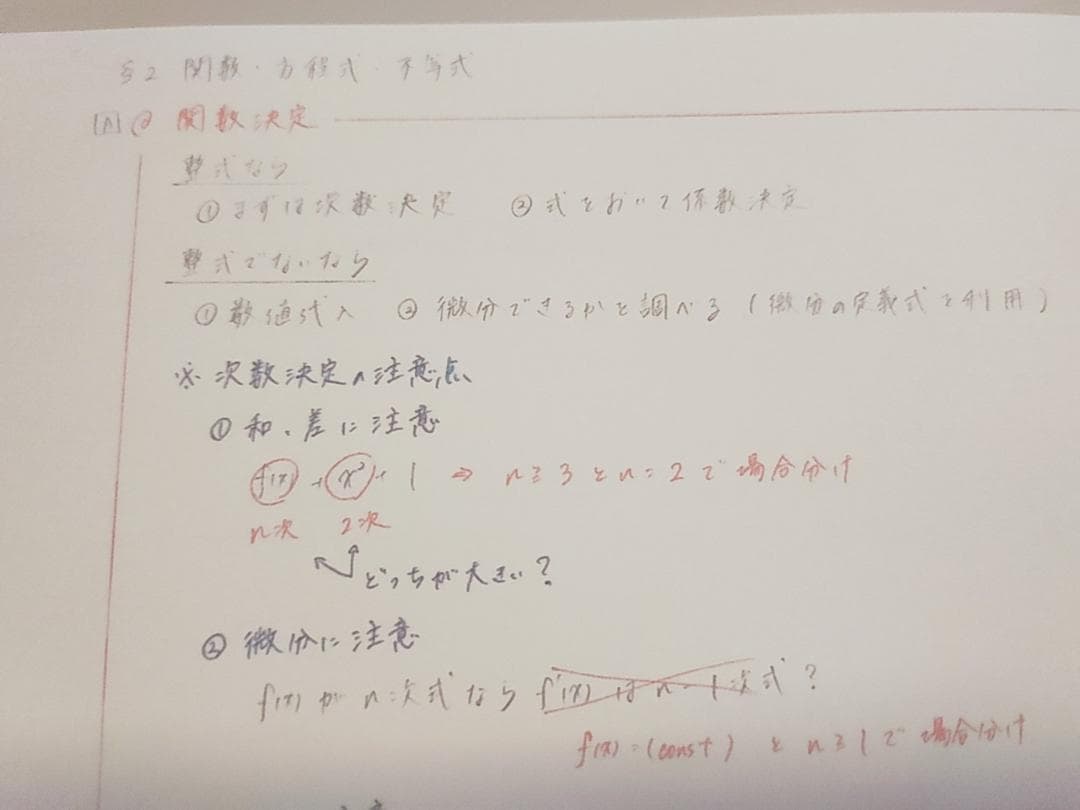 §2 関数・方程式・不等式
[A] @ 関数決定
整式なら
① まずは次数決定 ② 式をおいて係数決定
整式でないなら
① 数値代入 ② 微分できるかを調べる (微分の定義式を利用)
※ 次数決定の注意点
① 和、差に注意
f(x) + x² + 1 ⇒ n≧3 と n=2 で場合分け
n次 2次
どっちが大きい?
② 微分に注意
f(x) が n次式なら f'(x) は n-1次式?
f(x)=(const) と n≧1 で場合分け